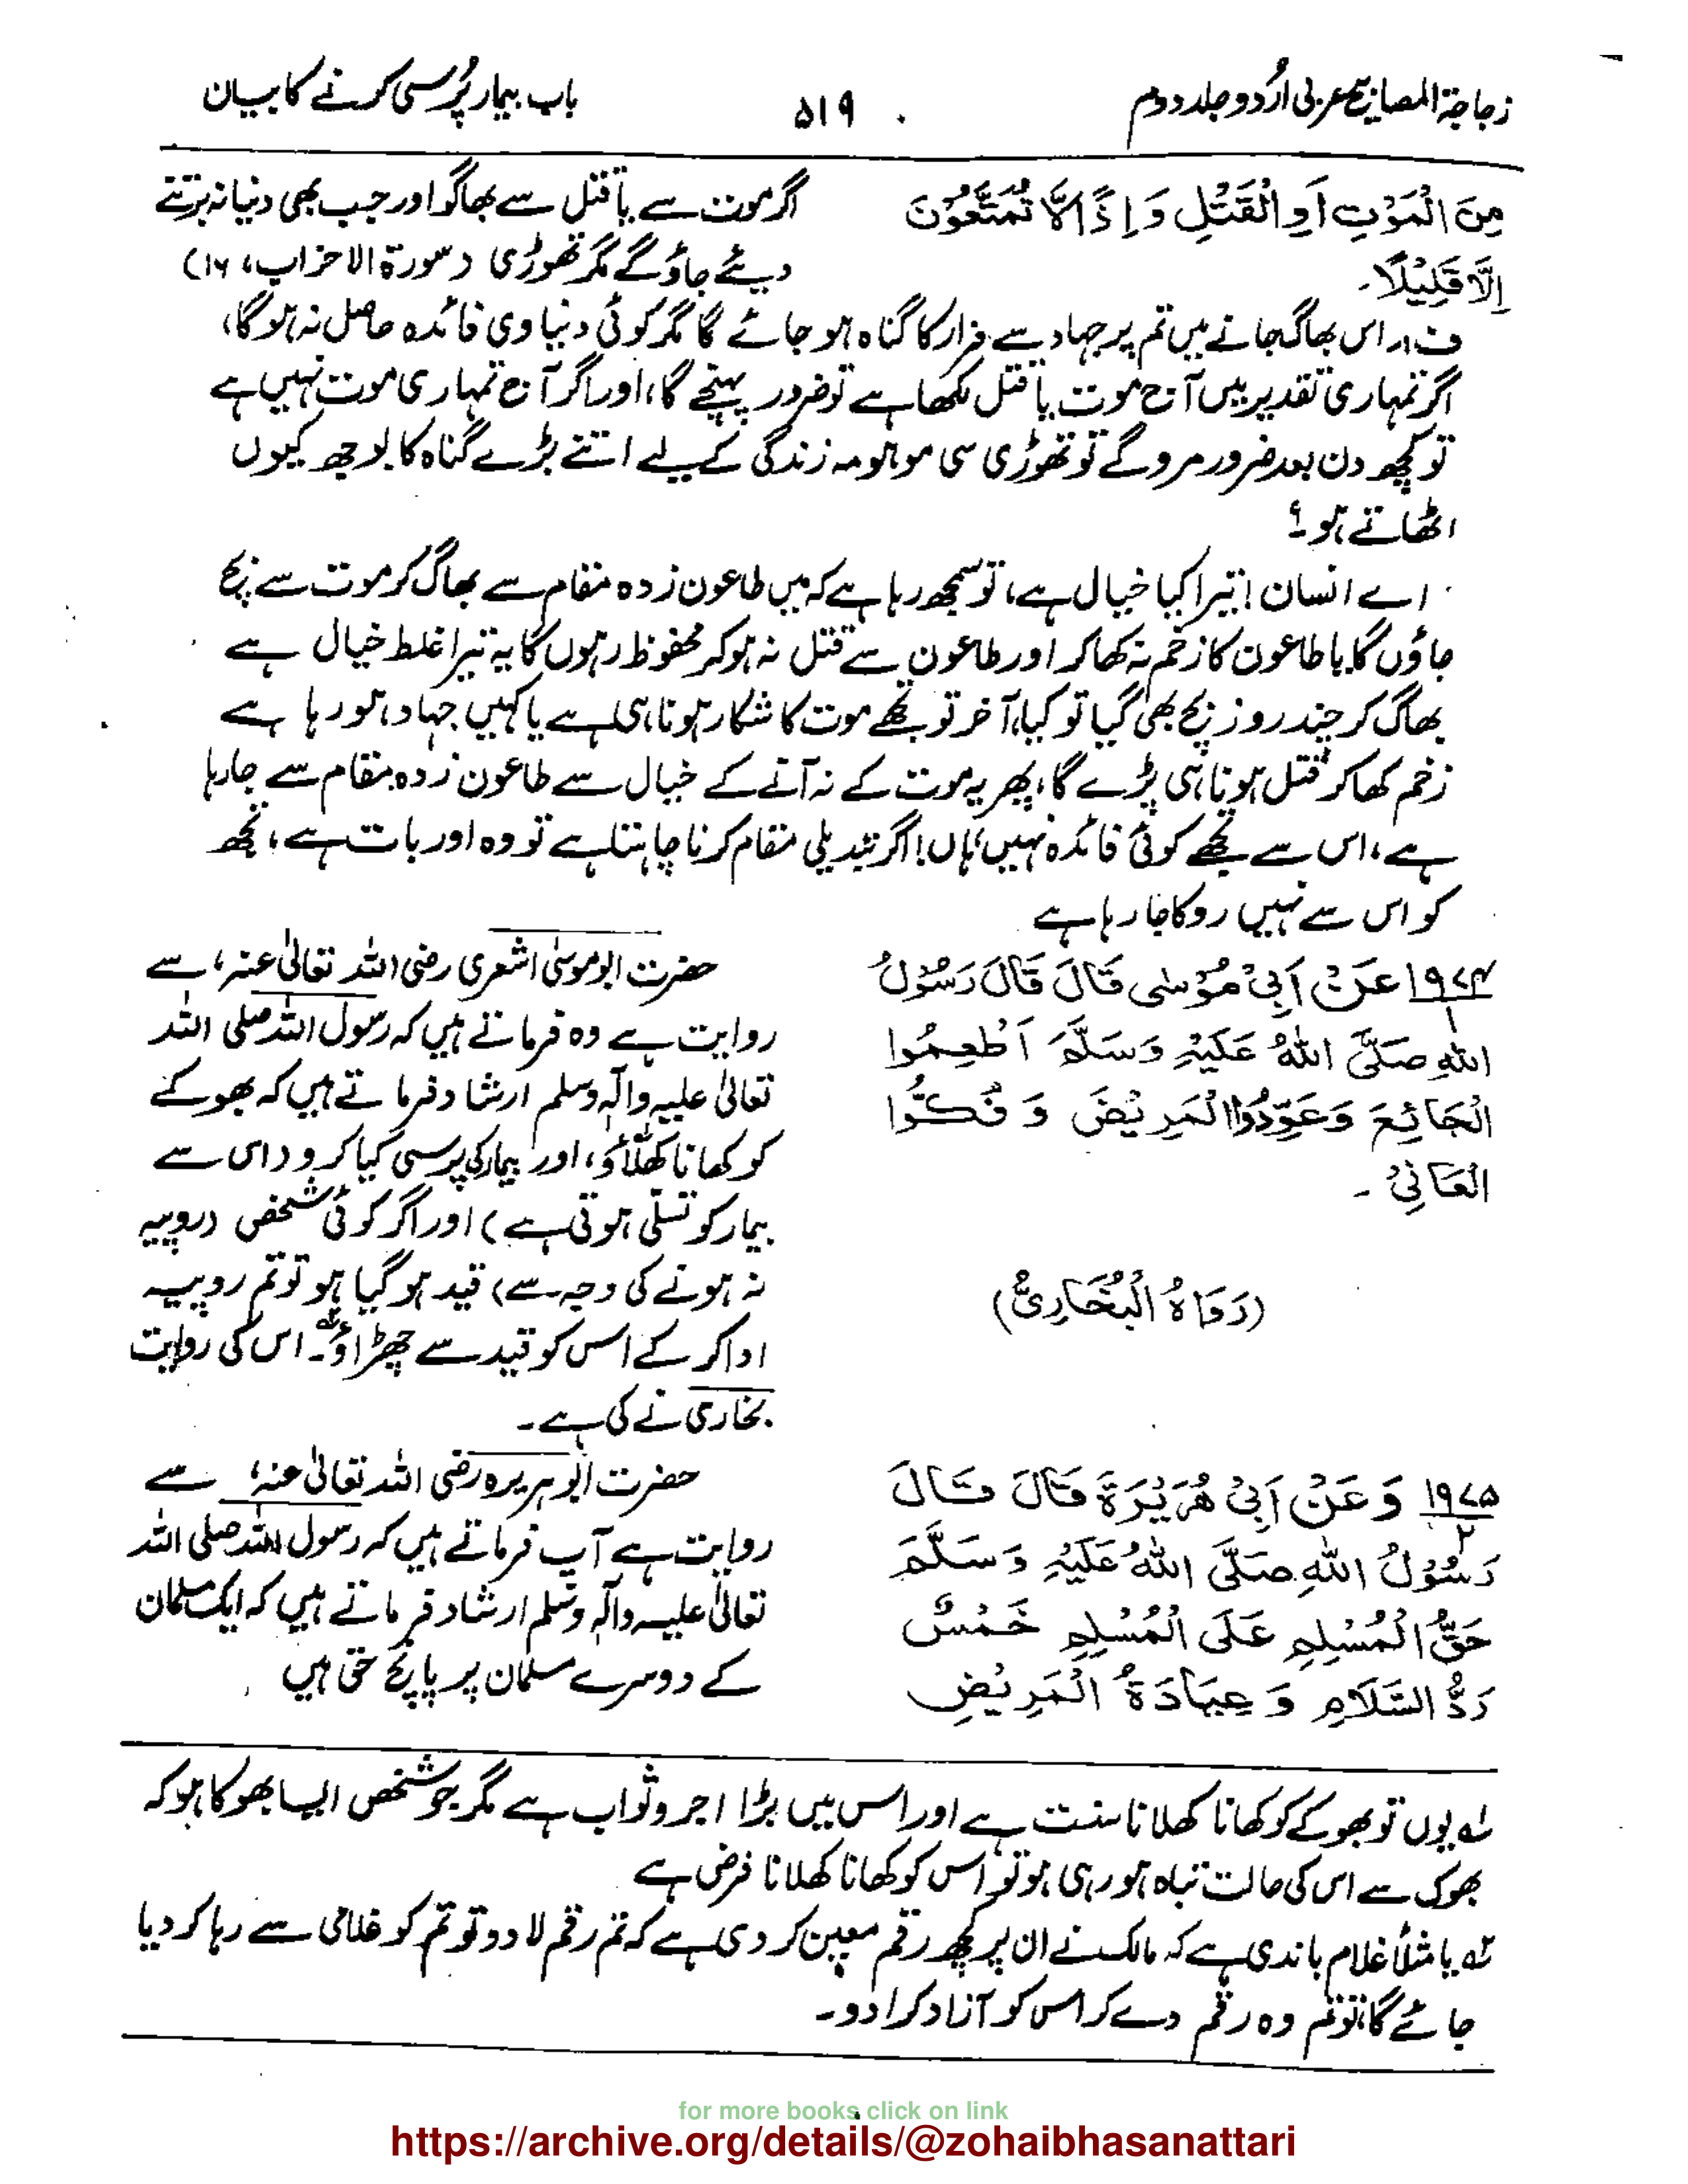 زجاجۃ المصابیح عربی اُردو جلد دوم
۵۱۹
باب بیمار پُرسی کرنے کا بیان
مِنَ الْمَوْتِ اَوِ الْقَتْلِ وَ اِذًا لَّا تُمَتَّعُوْنَ
اِلَّا قَلِيْلًا۔
اگر موت سے یا قتل سے بھاگو اور جب بھی دنیا نہ برتنے
دیئے جاؤ گے مگر تھوڑی (سورۃ الاحزاب، ۱۶)
ف۱؍ اس بھاگ جانے میں تم پر جہاد سے فرار کا گناہ ہو جائے گا مگر کوئی دنیاوی فائدہ حاصل نہ ہوگا،
اگر تمہاری تقدیر میں آج موت یا قتل لکھا ہے تو ضرور پہنچے گا، اور اگر آج تمہاری موت نہیں ہے
تو کچھ دن بعد ضرور مرو گے تو تھوڑی سی موہومہ زندگی کے لیے اتنے بڑے گناہ کا بوجھ کیوں
اٹھاتے ہو؟
اے انسان! تیرا کیا خیال ہے، تو سمجھ رہا ہے کہ میں طاعون زدہ مقام سے بھاگ کر موت سے بچ
جاؤں گا یا طاعون کا زخم نہ کھا کر اور طاعون سے قتل نہ ہو کر محفوظ رہوں گا یہ تیرا غلط خیال ہے
بھاگ کر چند روز بچ بھی گیا تو کیا، آخر تو تجھے موت کا شکار ہونا ہی ہے یا کہیں جہاد ہو رہا ہے
زخم کھا کر قتل ہونا ہی پڑے گا، پھر یہ موت کے نہ آنے کے خیال سے طاعون زدہ مقام سے جا رہا
ہے، اس سے تجھے کوئی فائدہ نہیں، ہاں! اگر تبدیلی مقام کرنا چاہتا ہے تو وہ اور بات ہے، تجھ
کو اس سے نہیں روکا جا رہا ہے
۱۹۷۴/۱ عَنْ اَبِيْ مُوْسٰى قَالَ قَالَ رَسُوْلُ
اللهِ صَلَّى اللهُ عَلَيْهِ وَسَلَّمَ اَطْعِمُوا
الْجَائِعَ وَعَوِّدُوا الْمَرِيْضَ وَ فُكُّوا
الْعَانِيْ ۔
(رَوَاهُ الْبُخَارِيُّ)
حضرت ابو موسیٰ اشعری رضی اللہ تعالیٰ عنہ، سے
روایت ہے وہ فرماتے ہیں کہ رسول اللہ صلی اللہ
تعالیٰ علیہ والہٖ وسلم ارشاد فرماتے ہیں کہ بھوکے
کو کھانا کھلاؤ، اور بیمار کی پرسی کیا کرو (اس سے
بیمار کو تسلی ہوتی ہے) اور اگر کوئی شخص (روپیہ
نہ ہونے کی وجہ سے) قید ہو گیا ہو تو تم روپیہ
ادا کر کے اس کو قید سے چھڑاؤ۔ اس کی روایت
بخاری نے کی ہے۔
۱۹۷۵/۲ وَ عَنْ اَبِيْ هُرَيْرَةَ قَالَ قَالَ
رَسُوْلُ اللهِ صَلَّى اللهُ عَلَيْهِ وَسَلَّمَ
حَقُّ الْمُسْلِمِ عَلَى الْمُسْلِمِ خَمْسٌ
رَدُّ السَّلَامِ وَ عِيَادَةُ الْمَرِيْضِ
حضرت ابو ہریرہ رضی اللہ تعالیٰ عنہ، سے
روایت ہے آپ فرماتے ہیں کہ رسول اللہ صلی اللہ
تعالیٰ علیہ والہٖ وسلم ارشاد فرماتے ہیں کہ ایک مسلمان
کے دوسرے مسلمان پر پانچ حق ہیں
لہ یوں تو بھوکے کو کھانا کھلانا سنت ہے اور اس میں بڑا اجر و ثواب ہے مگر جو شخص ایسا بھوکا ہو کہ
بھوک سے اس کی حالت تباہ ہو رہی ہو تو اس کو کھانا کھلانا فرض ہے
۲ہ یا مثلاً غلام باندی ہے کہ مالک نے ان پر کچھ رقم معین کر دی ہے کہ تم رقم لا دو تو تم کو غلامی سے رہا کر دیا
جائے گا تو تم وہ رقم دے کر اس کو آزاد کرا دو۔
for more books click on link
https://archive.org/details/@zohaibhasanattari